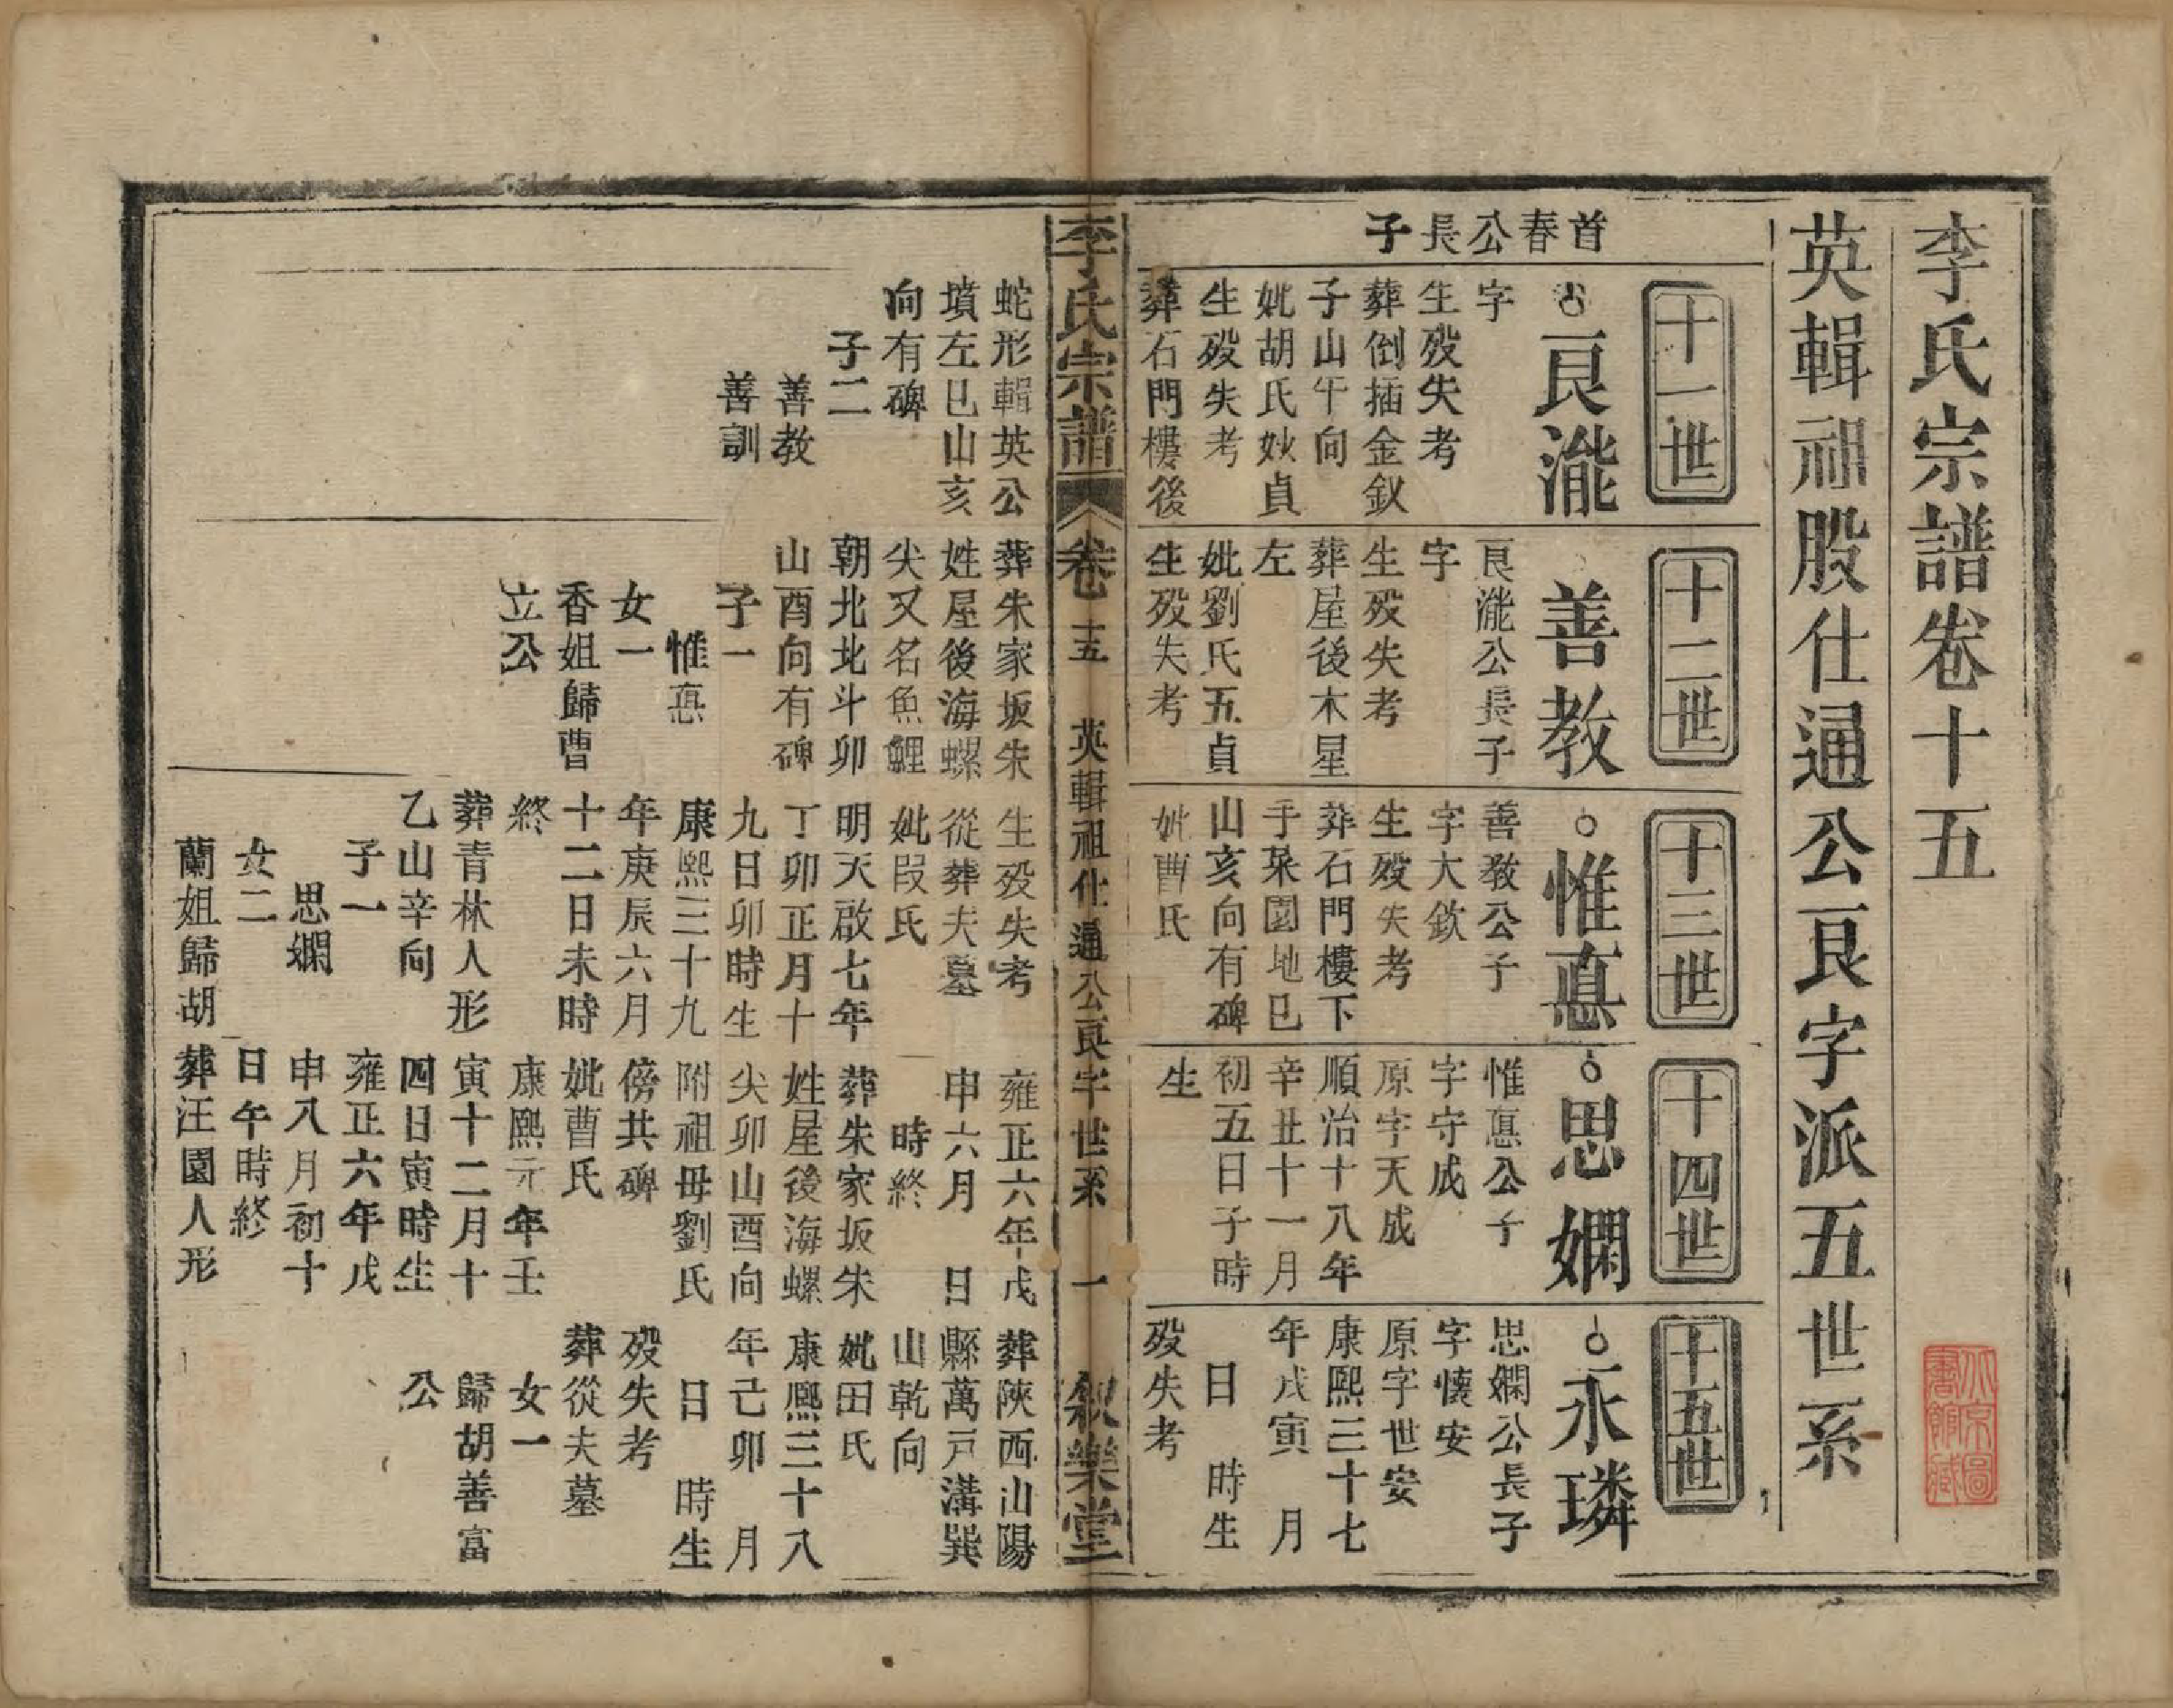 李氏宗譜卷十五
英輯祖股仕通公良字派五世系
首春公長子
十一世
良瀧
字
生歿失考
葬倒插金釵
子山午向
妣胡氏妙貞
生歿失考
葬石門樓後
蛇形輯英公
墳左巳山亥
向有碑
子二
善教
善訓
十二世
善教
良瀧公長子
字
生歿失考
葬屋後木星
左
妣劉氏五貞
生歿失考
葬朱家坂朱
姓屋後海螺
尖又名魚鯉
朝北北斗卯
山酉向有碑
子一
惟惪
女一
香姐歸曹
立公
十三世
惟惪
善教公子
字大欽
生歿失考
葬石門樓下
手菜園地巳
山亥向有碑
妣曹氏
生歿失考
從葬夫墓
妣段氏
明天啟七年
丁卯正月十
九日卯時生
康熙三十九
年庚辰六月
十二日未時
終
葬青林人形
乙山辛向
子一
思嫻
女二
蘭姐歸胡
十四世
思嫻
惟惪公子
字守成
原字天成
順治十八年
辛丑十一月
初五日子時
生
雍正六年戊
申六月 日
時終
葬朱家坂朱
姓屋後海螺
尖卯山酉向
附祖母劉氏
傍共碑
妣曹氏
康熙元年壬
寅十二月十
四日寅時生
雍正六年戊
申八月初十
日午時終
葬汪園人形
十五世
永璘
思嫻公長子
字懷安
原字世安
康熙三十七
年戊寅 月
日 時生
歿失考
葬陝西山陽
縣萬戸溝巽
山乾向
妣田氏
康熙三十八
年己卯 月
日 時生
歿失考
葬從夫墓
女一
歸胡善富
公
李氏宗譜 卷十五 英輯祖仕通公良字世系 一 敘樂堂